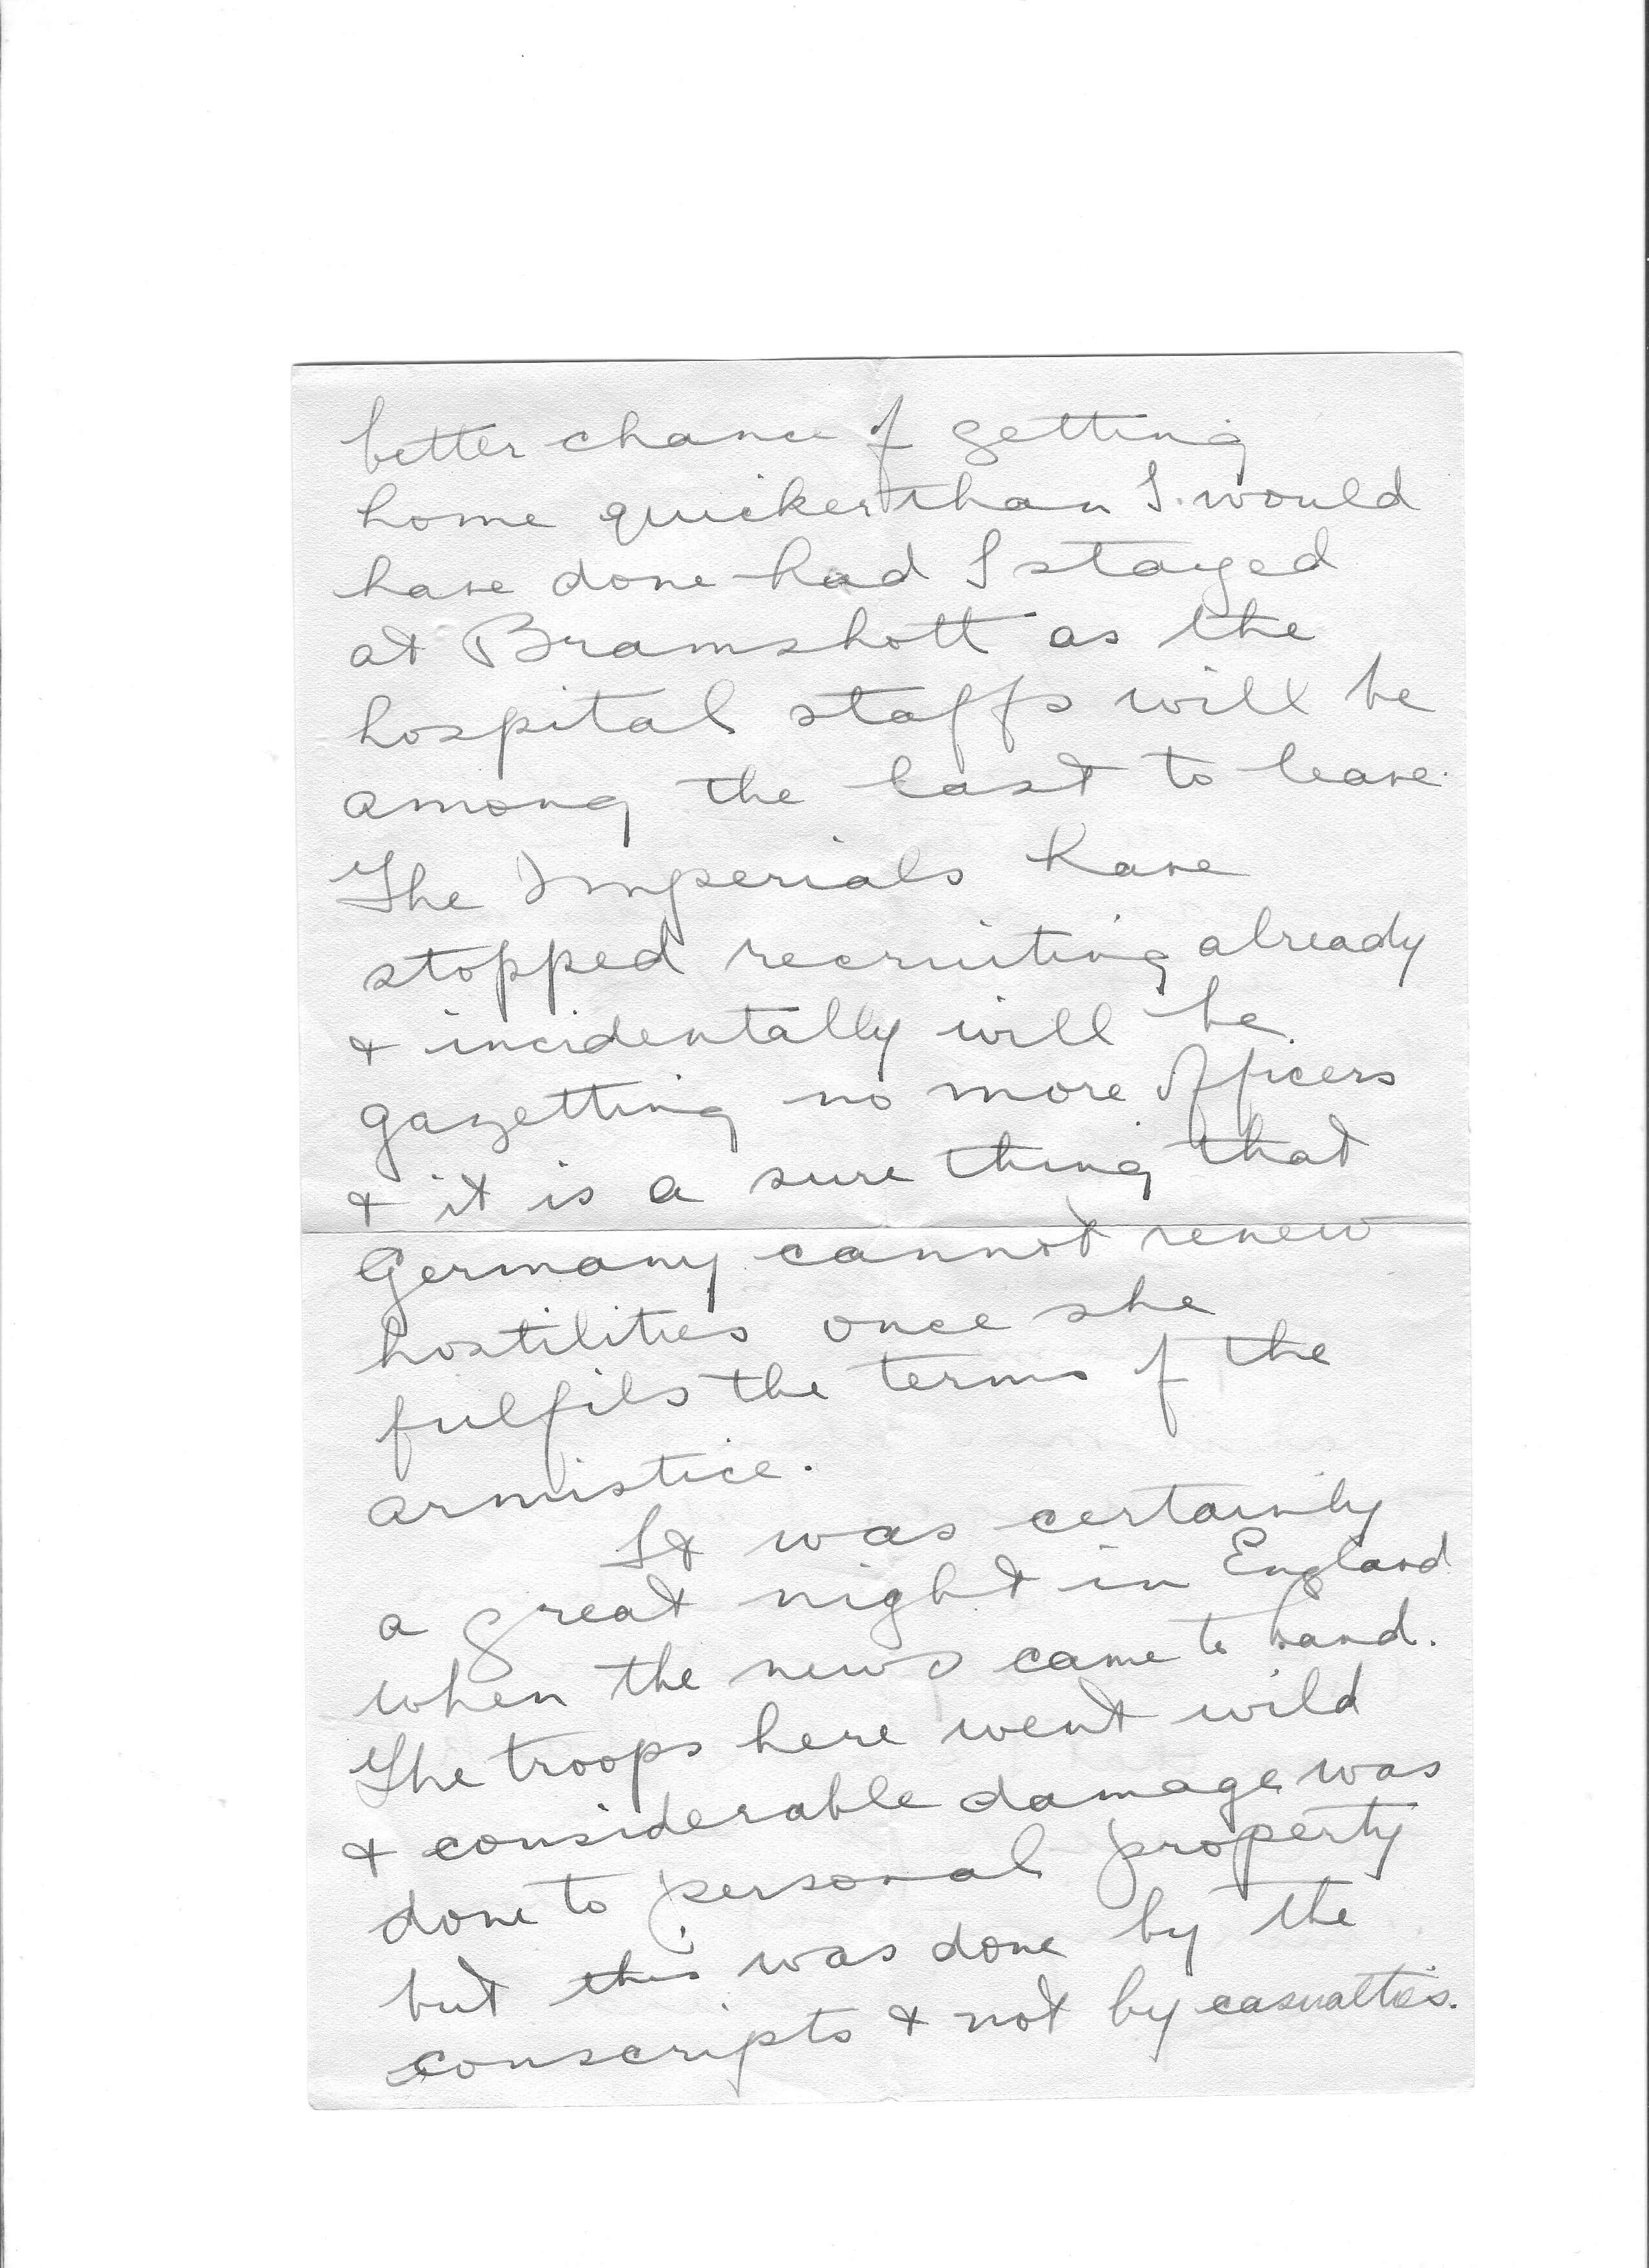 better chance of getting
home quicker than I would
have done had I stayed
at Bramshott as the
hospital staffs will be
among the last to leave.
The Imperials have
stopped recruiting already
& incidentally will be
gazetting no more officers
& it is a sure thing that
Germany cannot renew
hostilities once she
fulfils the terms of the
armistice.
It was certainly
a great night in England
when the news came to hand.
The troops here went wild
& considerable damage was
done to personal property
but this was done by the
conscripts & not by casualties.